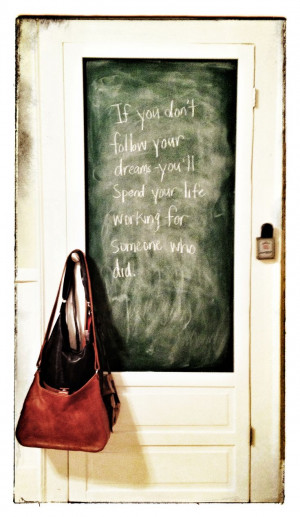 If you don't
follow your
dreams-you'll
Spend your life
working for
someone who
did.